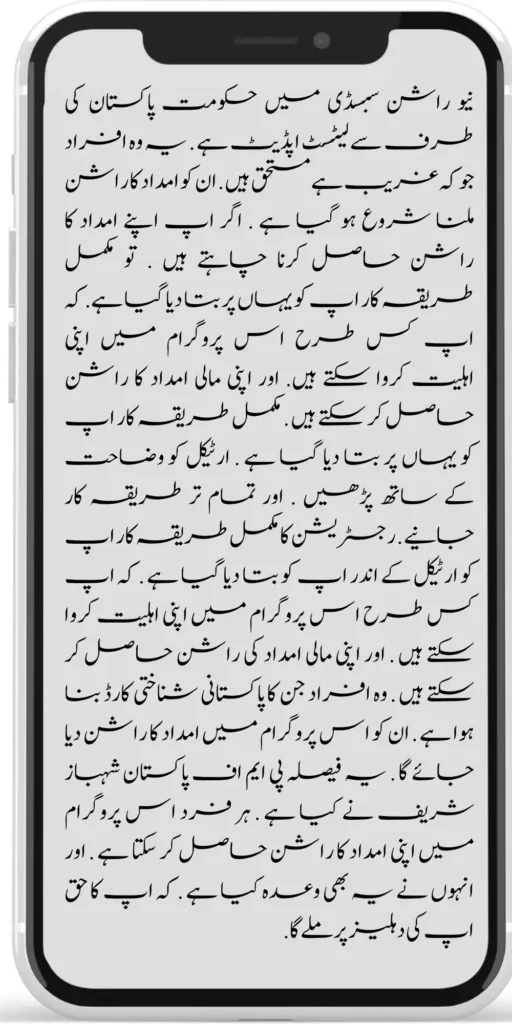 نیو راشن سبسڈی میں حکومت پاکستان کی
طرف سے لیٹسٹ اپڈیٹ ہے. یہ وہ افراد
جو کہ غریب ہے مستحق ہیں. ان کو امداد کا راشن
ملنا شروع ہو گیا ہے . اگر اپ اپنے امداد کا
راشن حاصل کرنا چاہتے ہیں . تو مکمل
طریقہ کار اپ کو یہاں پر بتا دیا گیا ہے. کہ
اپ کس طرح اس پروگرام میں اپنی
اہلیت کروا سکتے ہیں. اور اپنی مالی امداد کا راشن
حاصل کر سکتے ہیں. مکمل طریقہ کار اپ
کو یہاں پر بتا دیا گیا ہے . ارٹیکل کو وضاحت
کے ساتھ پڑھیں . اور تمام تر طریقہ کار
جانیے. رجسٹریشن کا مکمل طریقہ کار اپ
کو ارٹیکل کے اندر اپ کو بتا دیا گیا ہے . کہ اپ
کس طرح اس پروگرام میں اپنی اہلیت کروا
سکتے ہیں . اور اپنی مالی امداد کی راشن حاصل کر
سکتے ہیں . وہ افراد جن کا پاکستانی شناختی کارڈ بنا
ہوا ہے . ان کو اس پروگرام میں امداد کا راشن دیا
جائے گا . یہ فیصلہ پی ایم اف پاکستان شہباز
شریف نے کیا ہے . ہر فرد اس پروگرام
میں اپنی امداد کا راشن حاصل کر سکتا ہے . اور
انہوں نے یہ بھی وعدہ کیا ہے . کہ اپ کا حق
اپ کی دہلیز پر ملے گا.